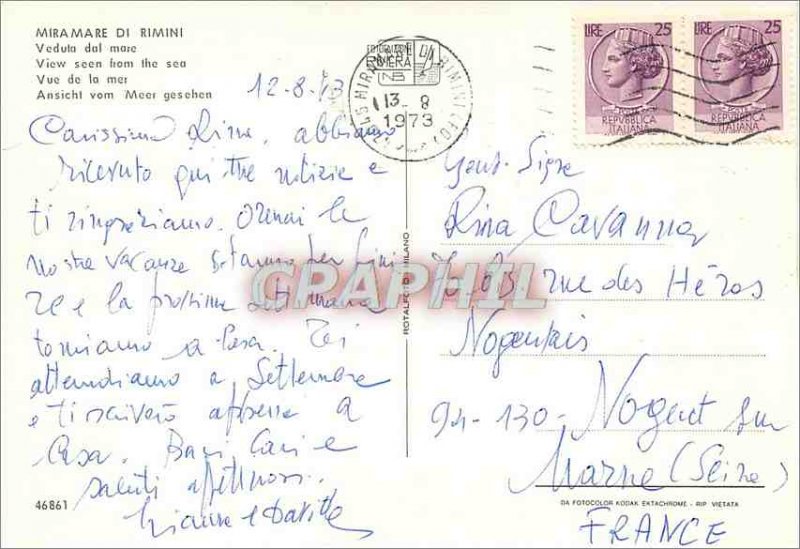 MIRAMARE DI RIMINI
Veduta dal mare
View seen from the sea
Vue de la mer
Ansicht vom Meer gesehen
12-8-73
Carissima Rina, abbiamo
ricevuto qui tue notizie e
ti ringraziamo. Ormai le
nostre vacanze stanno per fini
re e la prossima settimana
torniamo a casa. Ti
attendiamo a Settembre
e ti scriverò appena a
Casa. Baci Cari e
saluti affettuosi.
e Davide
46861
ROTALFOTO - MILANO
GRAPHIL
EDIZIONI
RIVIERA
13. 8
1973
LIRE 25
POSTE
REPVBBLICA
ITALIANA
LIRE 25
POSTE
REPVBBLICA
ITALIANA
Gent. Sig.ra
Rina Cavanna
63 rue des Héros
Nogentais
94-130- Nogent sur
Marne (Seine)
FRANCE
DA FOTOCOLOR KODAK EKTACHROME - RIP. VIETATA